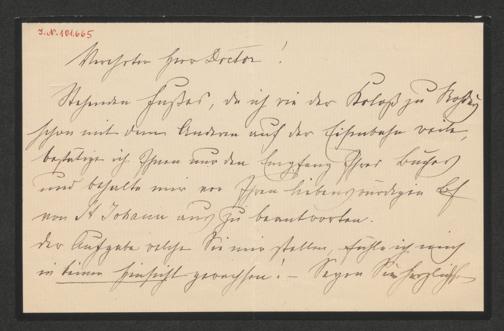 J.N. 101.665
Verehrter Herr Doctor!
Stehenden Fußes, da ich wie der Koloß zu Rhodus
schon mit dem Anderen auf der Eisenbahn weile,
bestätige ich Ihnen nur den Empfang Ihres Buches
und behalte mir vor Ihren liebenswürdigen Bf
von St Johann aus zu beantworten.
Der Aufgabe welche Sie mir stellen, fühle ich mich
in keiner Hinsicht gewachsen! – Sagen Sie herzlichst